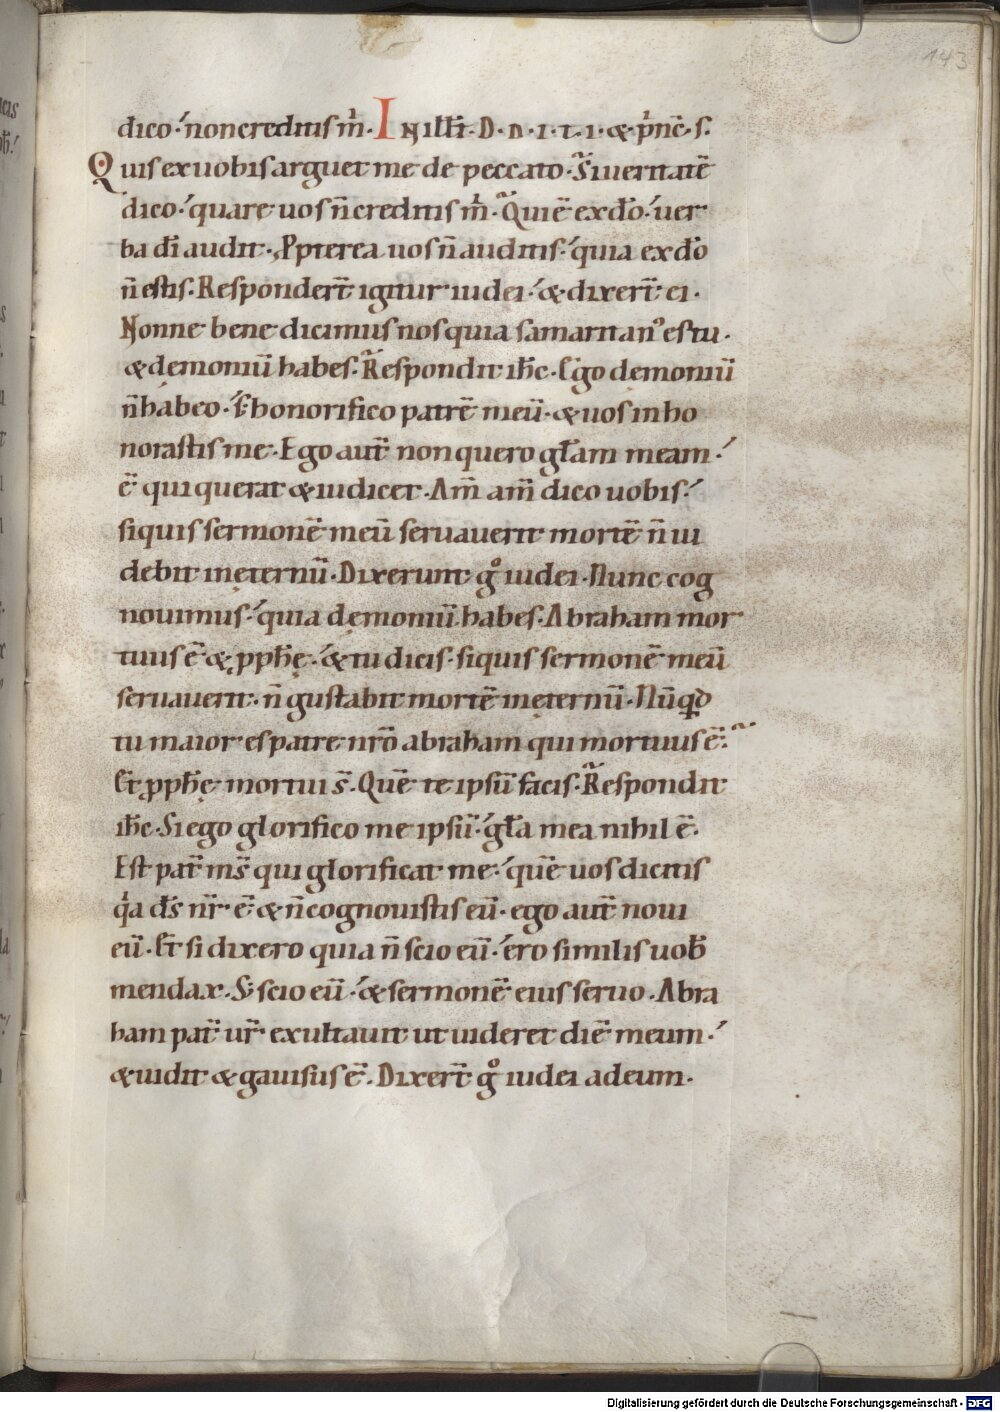 143
dico·' non creditis m̄· In illı̄· D· n· i· t· i· & p̄nc̄· s·
Quis ex uobis arguet me de peccato· Si ueritatē
dico·' quare uos n̄ creditis m̄· Qui ē ex do·' uer
ba dī audit· Ppterea uos n̄ auditis·' quia ex do
n̄ estis· Respondert̄ igitur iudei·' & dixert̄ ei·
Nonne bene dicimus nos quia samaritan' es tu·
& demoniū habes· Respondit ihc̄· Ego demoniū
n̄ habeo· S; honorifico patrē meū· & uos inho
norastis me· Ego aut̄ non quero gła̅m meam·'
ē qui querat & iudicet· Am̄ am̄ dico uobis·'
siquis sermonē meū seruauerit mortē n̄ ui
debit inęternū· Dixerunt g° iudei· Nunc cog
nouimus·' quia dęmoniū habes· Abraham mor
tuus ē & pph̄ę·' & tu dicis· siquis sermonē meū
seruauerit· n̄ gustabit mortē inęternū· Nūqd
tu maior es patre nr̄o abraham qui mortuus ē·
Et pph̄ę mortui s̄· Quē te ipsū facis· Respondit
ihc̄· Si ego glorifico me ipsū·' gła mea nihil ē·
Est pat̄ ms̄ qui glorificat me·' quē uos dicitis
qa ds̄ nr̄ ē & n̄ cognouistis eū· ego aut̄ noui
eū· Et si dixero quia n̄ scio eū·' ero similis uob̄
mendax· S; scio eū·' & sermonē eius seruo· Abra
ham pat̄ ur̄ exultauit ut uideret diē meum·'
& uidit & gauisus ē· Dixert̄ g° iudei adeum·
Digitalisierung gefördert durch die Deutsche Forschungsgemeinschaft - DFG